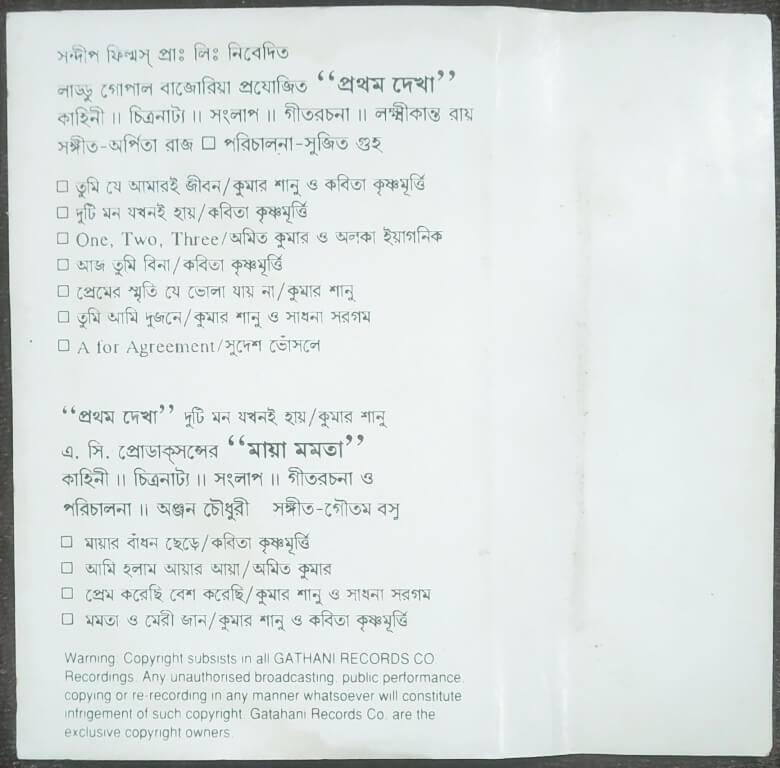 সন্দীপ ফিল্মস্ প্রাঃ লিঃ নিবেদিত
লাড্ডু গোপাল বাজোরিয়া প্রযোজিত “প্রথম দেখা”
কাহিনী ॥ চিত্রনাট্য ॥ সংলাপ ॥ গীতরচনা ॥ লক্ষ্মীকান্ত রায়
সঙ্গীত-অর্পিতা রাজ □ পরিচালনা-সুজিত গুহ
□ তুমি যে আমারই জীবন/কুমার শানু ও কবিতা কৃষ্ণমূর্ত্তি
□ দুটি মন যখনই হায়/কবিতা কৃষ্ণমূর্ত্তি
□ One, Two, Three/অমিত কুমার ও অলকা ইয়াগনিক
□ আজ তুমি বিনা/কবিতা কৃষ্ণমূর্ত্তি
□ প্রেমের স্মৃতি যে ভোলা যায় না/কুমার শানু
□ তুমি আমি দুজনে/কুমার শানু ও সাধনা সরগম
□ A for Agreement/সুদেশ ভোঁসলে
“প্রথম দেখা” দুটি মন যখনই হায়/কুমার শানু
এ. সি. প্রোডাক্‌সন্সের “মায়া মমতা”
কাহিনী ॥ চিত্রনাট্য ॥ সংলাপ ॥ গীতরচনা ও
পরিচালনা ॥ অঞ্জন চৌধুরী সঙ্গীত-গৌতম বসু
□ মায়ার বাঁধন ছেড়ে/কবিতা কৃষ্ণমূর্ত্তি
□ আমি হলাম আয়ার আয়া/অমিত কুমার
□ প্রেম করেছি বেশ করেছি/কুমার শানু ও সাধনা সরগম
□ মমতা ও মেরী জান/কুমার শানু ও কবিতা কৃষ্ণমূর্ত্তি
Warning. Copyright subsists in all GATHANI RECORDS CO.
Recordings. Any unauthorised broadcasting, public performance,
copying or re-recording in any manner whatsoever will constitute
infrigement of such copyright. Gatahani Records Co. are the
exclusive copyright owners.